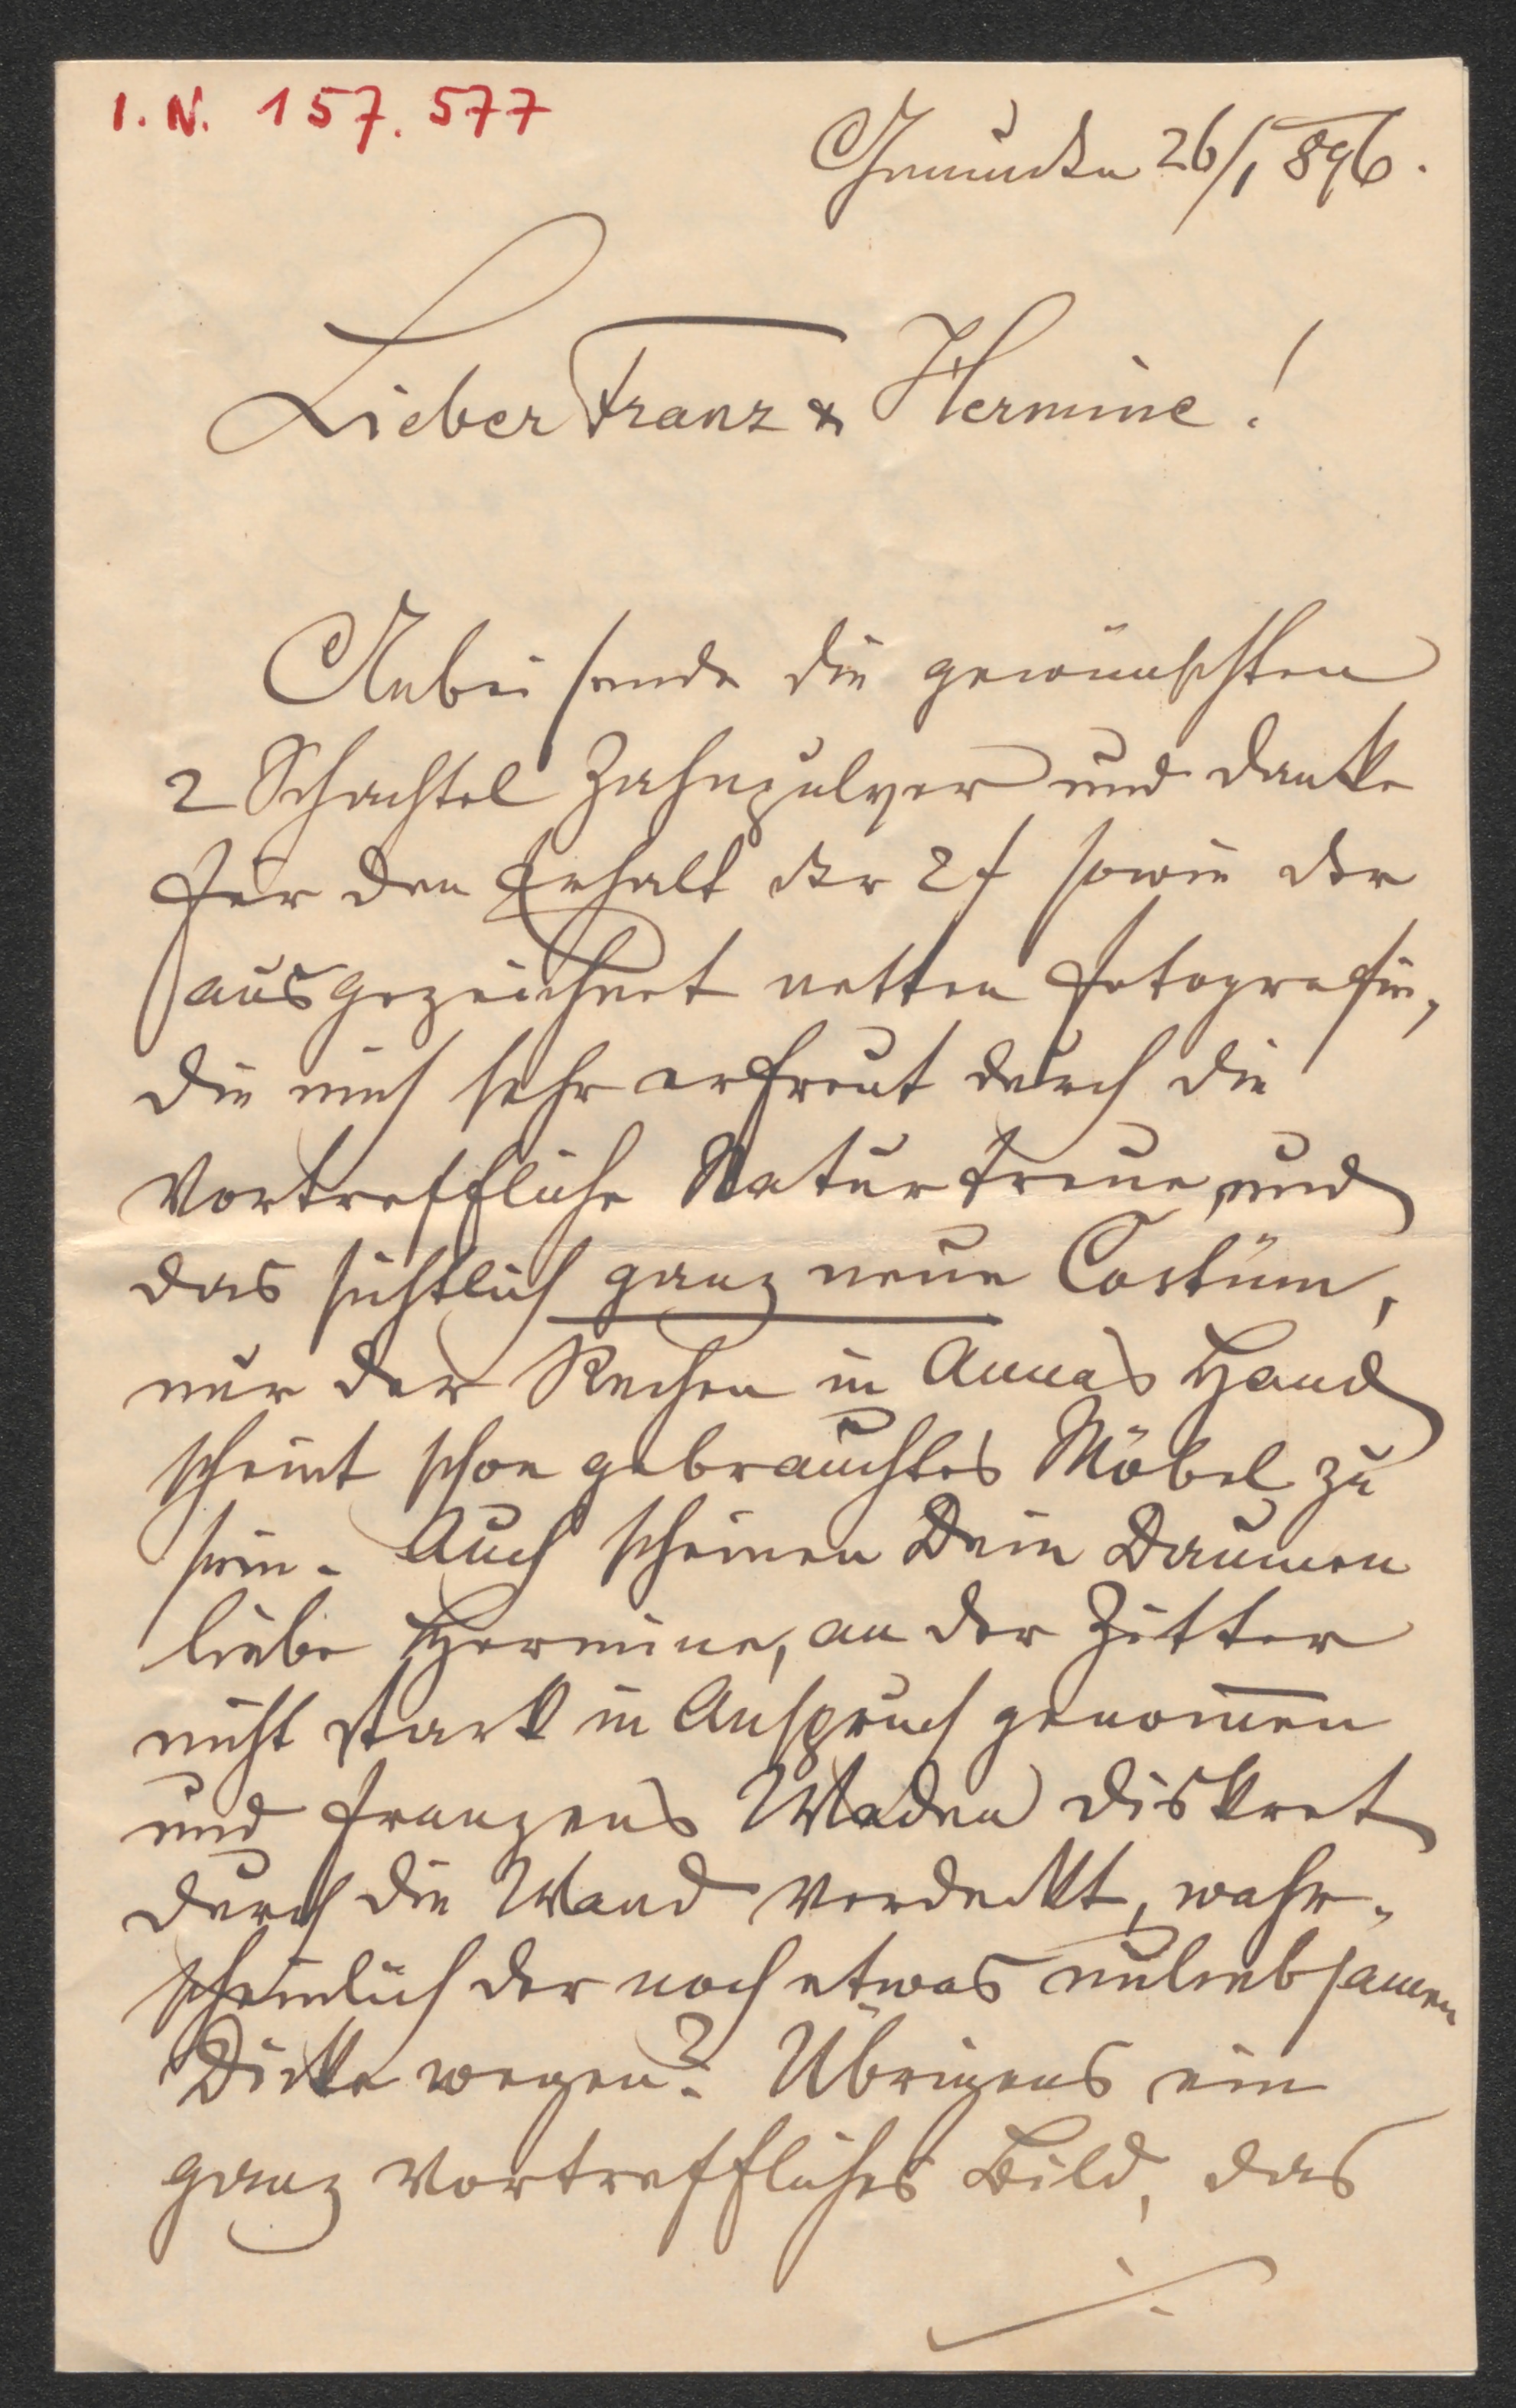 I. N. 157.577
Gmunden 26/1 896.
Lieber Franz & Hermine!
Anbei sende die gewünschten
2 Schachtel Zahnpulver und danke
für den Erhalt der 2 f sowie der
ausgezeichnet netten Fotografie,
die mich sehr erfreut durch die
vortreffliche Naturtreue und
das sichtlich ganz neue Costüm,
nur der Rechen in Annas Hand
scheint schon gebrauchtes Möbel zu
sein. Auch scheinen Dein Daumen
liebe Hermine, an der Zitter
nicht stark in Anspruch genom̅en
und Franzens Waden diskret
durch die Wand verdeckt, wahr-
scheinlich der noch etwas unliebsamen
Dicke wegen? Übrigens ein
ganz vortreffliches Bild, das
./.